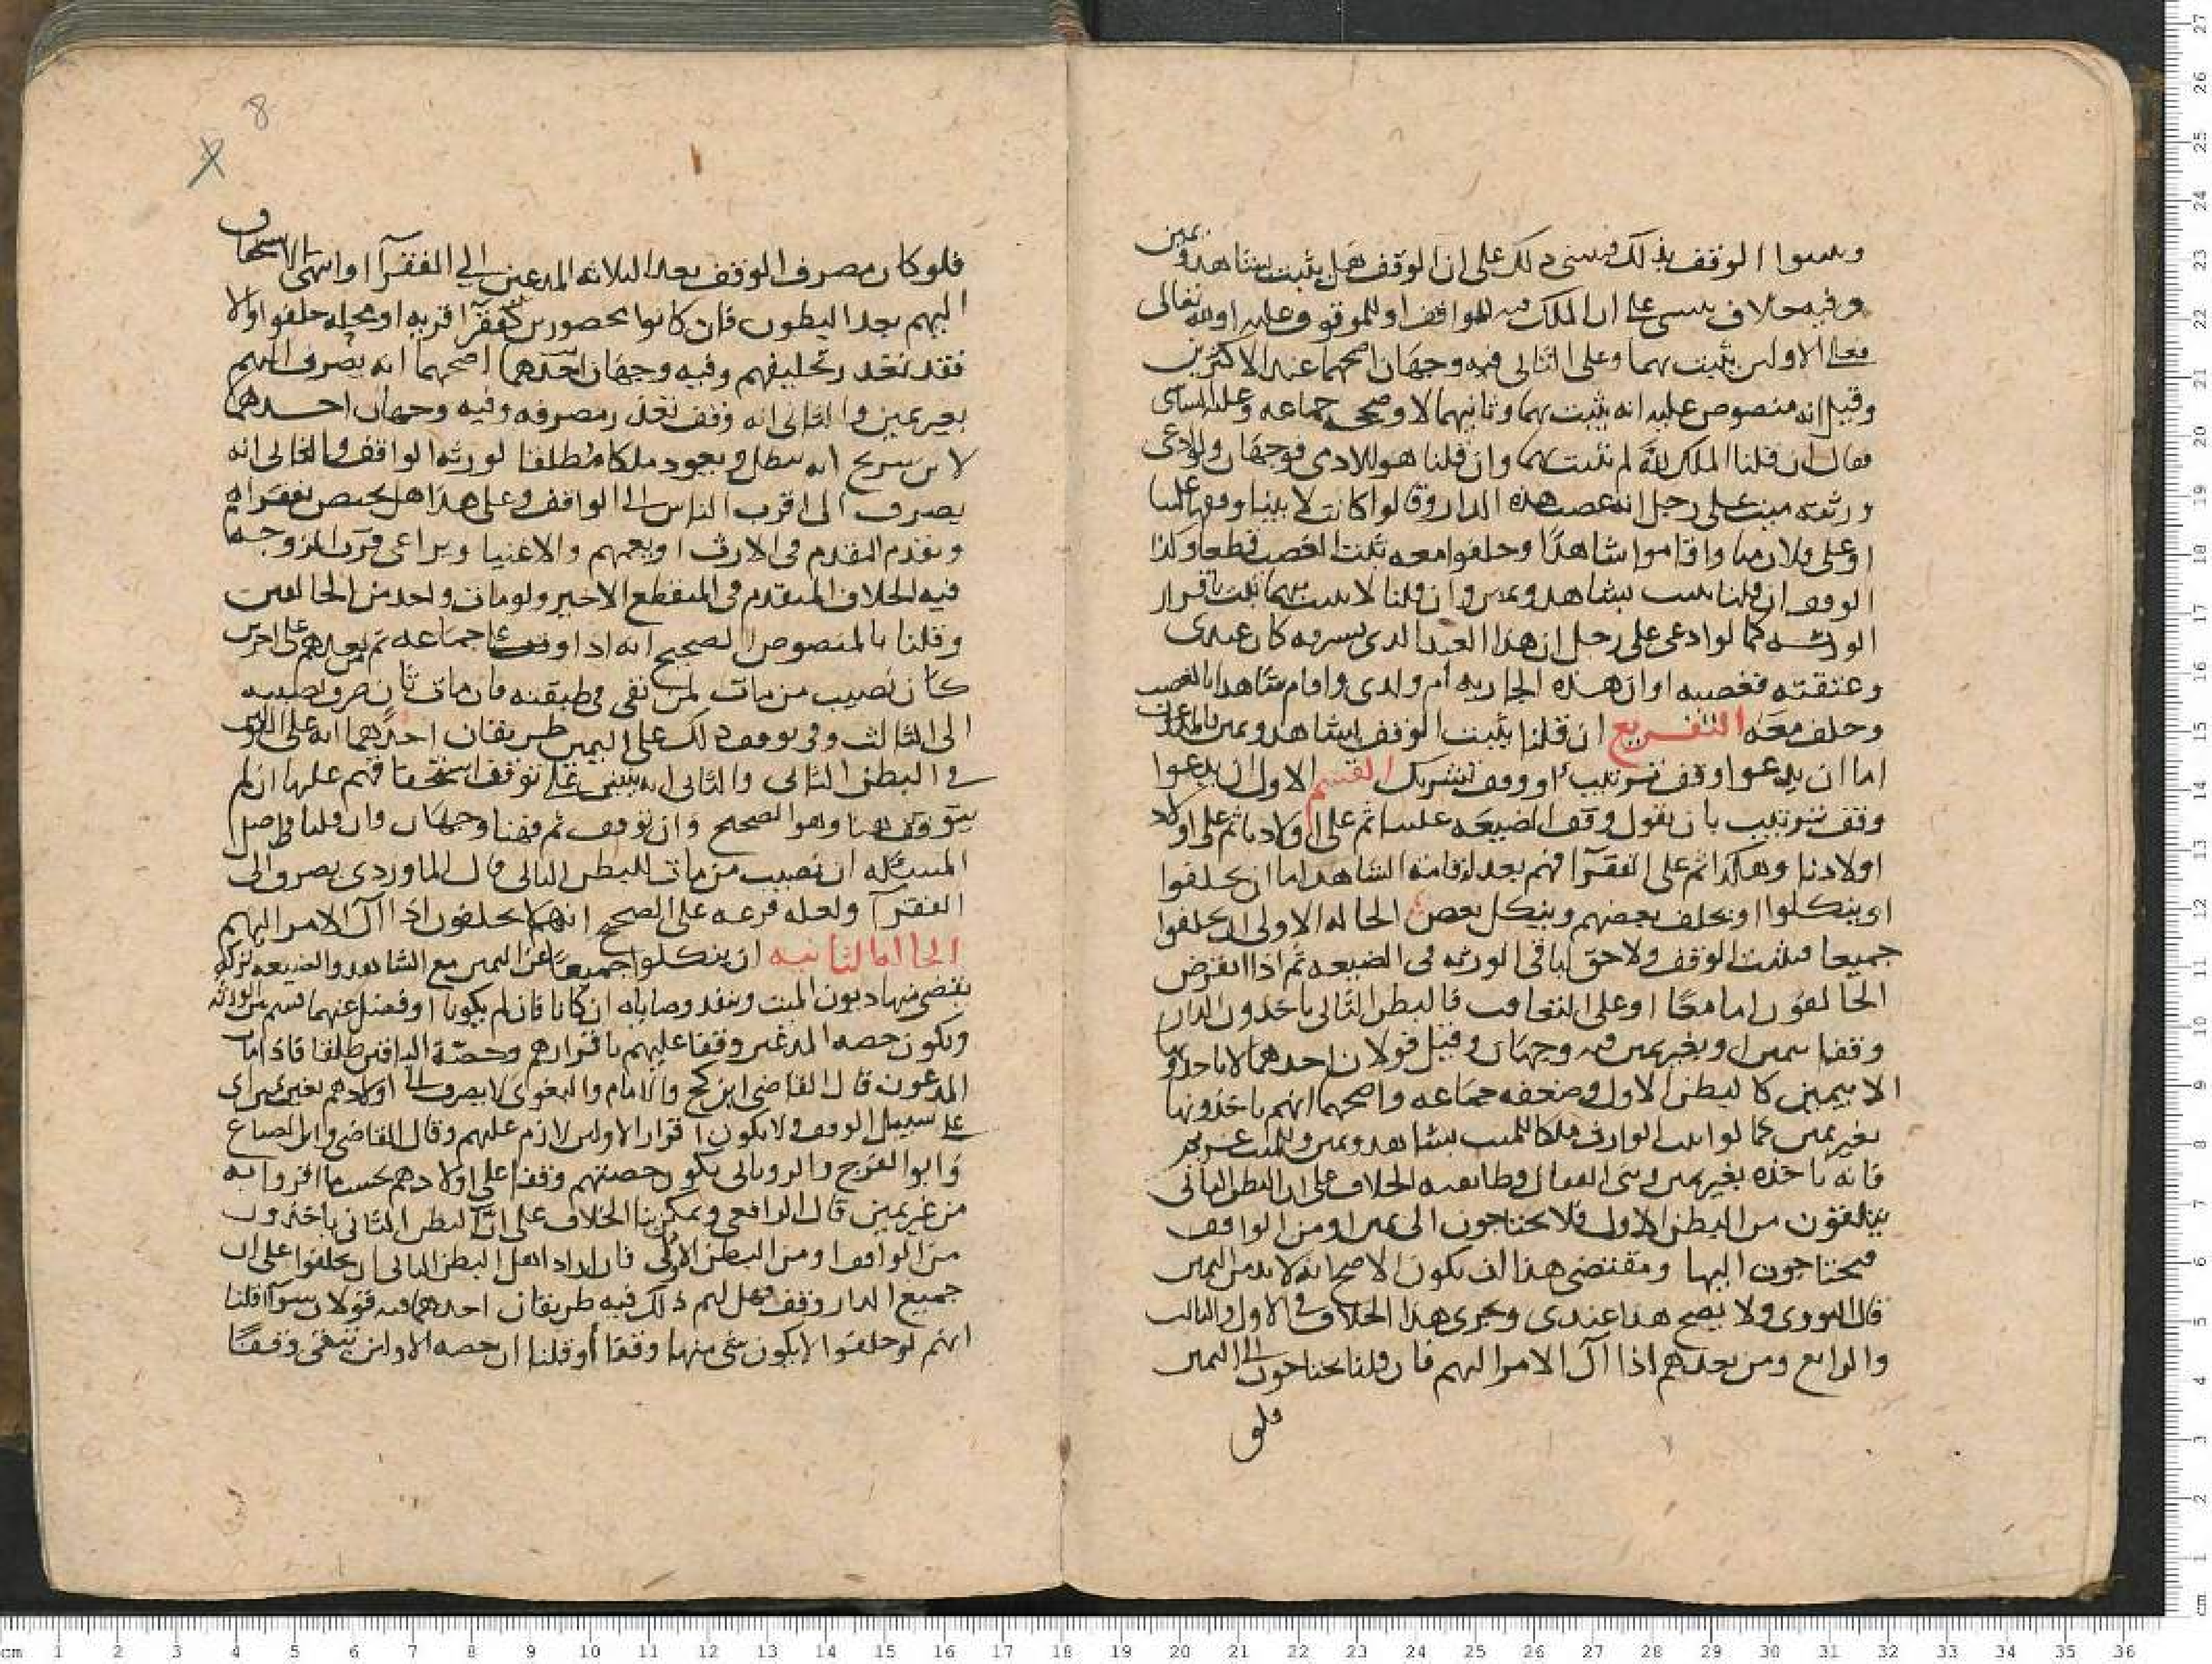 ويثبتوا الوقف بذلك فينبني ذلك على ان الوقف هل يثبت بشاهد ويمين
وفيه خلاف ينبني على ان الملك فيه للواقف او للموقوف عليه او لله تعالى
فعلى الاولين يثبت بهما وعلى الثالث فيه وجهان اصحهما عند الاكثرين
وقيل انه منصوص عليه انه يثبت بهما وثانيهما لا وصححه جماعة
فقال ان قلنا الملك لله لم يثبت بهما وان قلنا هو للادمي فوجهان ولو ادعى
ورثته ميت على رجل انه غصب هذه الدار وقالوا كانت لابينا وقفها علينا
او على فلان واقاموا شاهدا وحلفوا معه ثبت الغصب قطعا وكذا
الوقف ان قلنا يثبت بشاهد ويمين وان قلنا لا يثبت بهما ثبت باقرار
الورثه كما لو ادعى على رجل ان هذا العبد الذي يسترقه كان عبدي
وعتقته فغصبه او ان هذه الجاريه ام ولدي واقام شاهدا بالغصب
وحلف معه التفريع ان قلنا يثبت الوقف بشاهد ويمين
اما ان يدعوا وقف ترتيب او وقف تشريك القسم الاول ان يدعوا
وقف ترتيب بان نقول وقف الضيعه علينا ثم على اولادنا ثم على اولاد
اولادنا وهكذا ثم على الفقرا فهم بعد اقامة الشاهد اما ان يحلفوا
او ينكلوا او يحلف بعضهم وينكل بعض الحاله الاولى ان يحلفوا
جميعا فيثبت الوقف ولا حق لباقي الورثه في الضيعه ثم اذا انقرض
الحالفون اما معا او على التعاقب فالبطن الثاني ياخذون الدار
وقفا بيمين او بغير يمين فيه وجهان وقيل قولان احدهما لا ياخذونها
الا بيمين كالبطن الاول وضعفه جماعه واصحهما انهم ياخذونها
بغير يمين كما لو اثبت الوارث ملكا للميت بشاهد ويمين وللميت غريم
فانه ياخذه بغير يمين وبنى القفال وطائفه الخلاف على ان البطن الثاني
يتلقون من البطن الاول فلا يحتاجون الى يمين او من الواقف
فيحتاجون اليها ومقتضى هذا ان يكون الاصح انه لا بد من اليمين
قال النووي ولا يصح هذا عندي ويجري هذا الخلاف في الاول والثالث
والرابع ومن بعدهم اذا آل الامر اليهم فان قلنا يحتاجون الى اليمين
فلو
8
فلو كان مصرف الوقف بعد الثلاثه المدعين الى الفقرا وانتهى الاستحقاق
اليهم بعد البطون فان كانوا محصورين كفقرا قريه او محله حلفوا والا
فقد تعذر تحليفهم وفيه وجهان احدهما اصحهما انه يصرف اليهم
بغير يمين والثاني انه وقف تعذر مصرفه وفيه وجهان احدهما
لابن سريج انه يبطل ويعود ملكا مطلقا لورثه الواقف والثاني انه
يصرف الى اقرب الناس الى الواقف وعلى هذا هل يختص بفقرائهم
ويقدم المقدم في الارث او يعمهم والاغنيا ويراعى
فيه الخلاف المتقدم في المنقطع الاخير ولو مات واحد من الحالفين
وقلنا بالمنصوص الصحيح انه اذا وقف على جماعه ثم بعدهم على اخرين
كان نصيب من مات لمن بقي في طبقته فان مات ثان صرف نصيبه
الى الثالث وفي توقف ذلك على اليمين طريقان احدهما انه على
في البطن الثاني والثاني انه ينبني على توقف استحقاقهم عليها ان لم
يتوقف هنا وهو الصحيح وان توقف ثم ففنا وجهان وان قلنا في اصل
المسئله ان نصيب من مات للبطن الثاني قال الماوردي يصرف الى
الفقرا ولعله فرعه على الصحيح انهم لا يحلفون اذا آل الامر اليهم
الحاله الثانيه ان ينكلوا جميعا عن اليمين مع الشاهد والضيعه تركه
يقضى منها ديون الميت وينفذ وصاياه ان كانا فان لم يكونا او فضل عنهما قسم بين الورثه
ويكون حصه المدعين وقفا عليهم باقرارهم وحصة الباقين طلقا فاذا مات
المدعون قال القاضي ابن كج والامام والبغوي لا يصرف الى اولادهم بغير يمين
على سبيل الوقف ولا يكون اقرار الاولين لازم عليهم وقال القاضي وابن الصباغ
وابو الفرج والروياني يكون حصتهم وقفا على اولادهم بحسب ما اقروا به
من غير يمين قال الرافعي ويمكن بنا الخلاف على ان البطن الثاني ياخذون
من الواقف او من البطن الاول فان اراد اهل البطن الثاني ان يحلفوا على ان
جميع الدار وقف فهل لهم ذلك فيه طريقان احدهما فيه قولان سوا قلنا
انهم لو حلفوا لا يكون شي منها وقفا او قلنا ان حصه الاولين تبقى وقفا